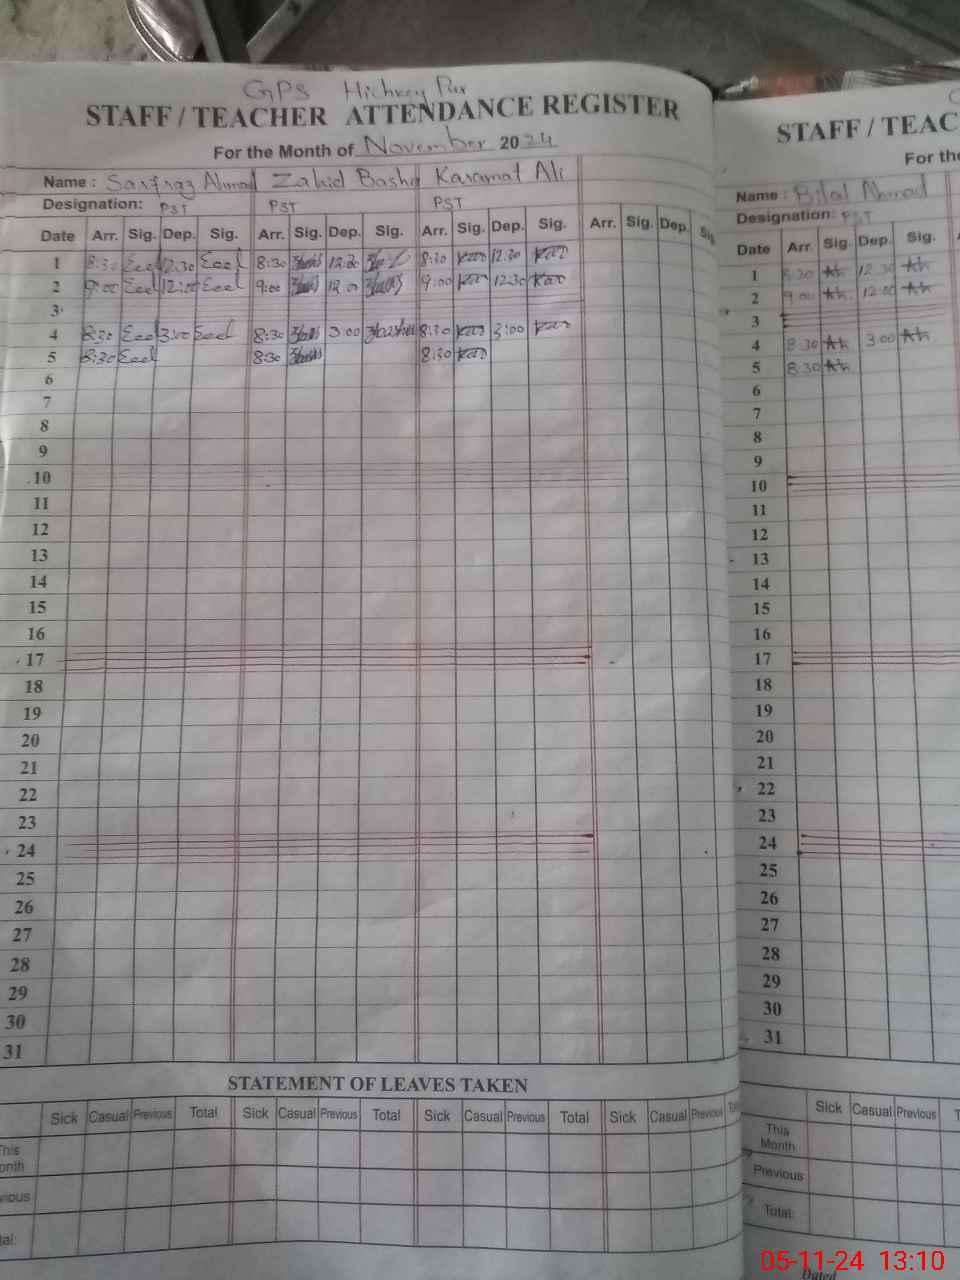 GPS Hichrey Pur
STAFF / TEACHER ATTENDANCE REGISTER
For the Month of November 2024
Name : Sarfraz Ahmad Zahid Bashir Karamat Ali
Designation: PST PST PST
Date Arr. Sig. Dep. Sig. Arr. Sig. Dep. Sig. Arr. Sig. Dep. Sig. Arr. Sig. Dep. Sig
1 8:30 12:30 8:30 12:30 8:30 12:30
2 9:00 12:00 9:00 12:00 9:00 12:30
3
4 8:30 3:00 8:30 3:00 8:30 3:00
5 8:30 8:30 8:30
6
7
8
9
10
11
12
13
14
15
16
17
18
19
20
21
22
23
24
25
26
27
28
29
30
31
STATEMENT OF LEAVES TAKEN
Sick Casual Previous Total Sick Casual Previous Total Sick Casual Previous Total Sick Casual Previous
STAFF / TEAC
For the
Name : Bilal Ahmad
Designation: PST
Date Arr. Sig. Dep. Sig.
1 8:30 Ah 12:30 Ah
2 9:00 Ah 12:00 Ah
3
4 8:30 Ah 3:00 Ah
5 8:30 Ah
6
7
8
9
10
11
12
13
14
15
16
17
18
19
20
21
22
23
24
25
26
27
28
29
30
31
Sick Casual Previous
This
Month
Previous
Total:
Dated
05-11-24 13:10